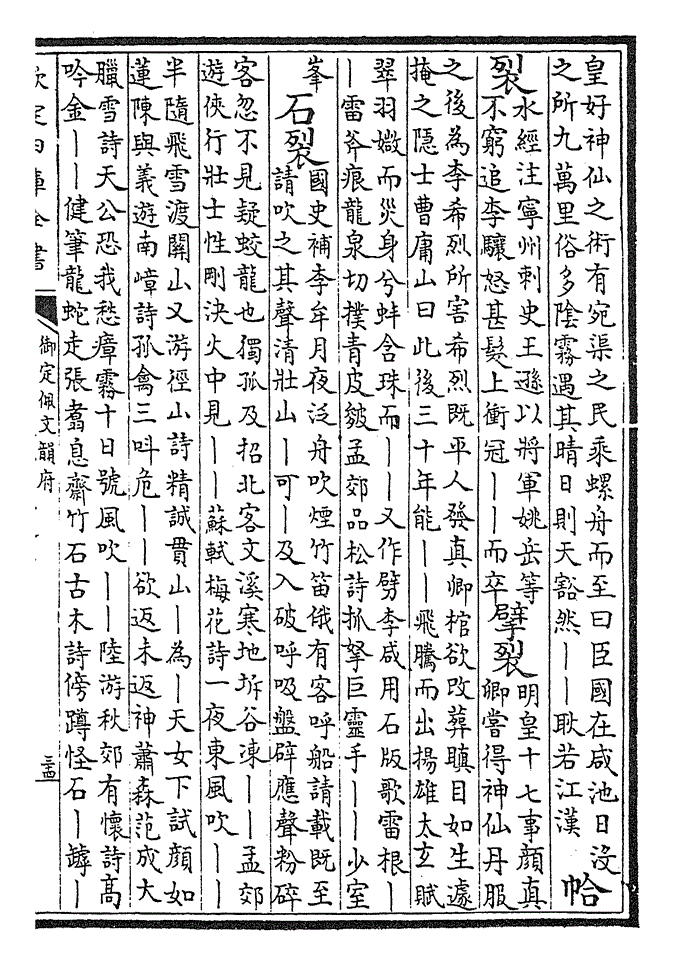 皇好神仙之術有宛渠之民乘螺舟而至曰臣國在咸池日沒
之所九萬里俗多陰霧遇其晴日則天豁然——耿若江漢
帢
裂
水經注寧州刺史王遜以將軍姚岳等
不窮追李驤怒甚髮上衝冠——而卒
擘裂
明皇十七事顔真
卿嘗得神仙丹服
之後為李希烈所害希烈既平人發真卿棺欲改葬瞋目如生遽
掩之隱士曹庸山曰此後三十年能——飛騰而出揚雄太玄賦
翠羽媺而災身兮蚌含珠而——又作劈李咸用石版歌雷根—
—雷斧痕龍泉切撲青皮皴孟郊品松詩抓拏巨靈手——少室
峯
石裂
國史補李牟月夜泛舟吹煙竹笛俄有客呼船請載既至
請吹之其聲清壯山—可—及入破呼吸盤辟應聲粉碎
客忽不見疑蛟龍也獨孤及招北客文溪寒地坼谷凍——孟郊
遊俠行壯士性剛決火中見——蘇軾梅花詩一夜東風吹——
半隨飛雪渡關山又游徑山詩精誠貫山—為—天女下試顔如
蓮陳與義遊南嶂詩孤禽三呌危——欲返未返神蕭森范成大
臘雪詩天公恐我愁瘴霧十日號風吹——陸游秋郊有懷詩高
吟金——健筆龍蛇走張翥息齋竹石古木詩傍蹲怪石—罅—
欽定四庫全書
御定佩文韻府